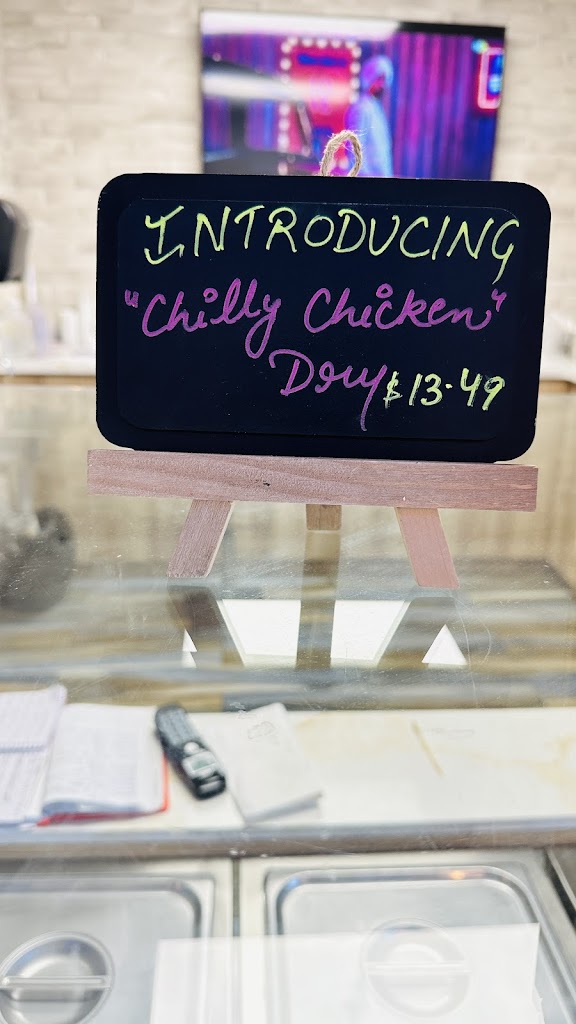 INTRODUCING
"Chilly Chicken"
Dry $13.49